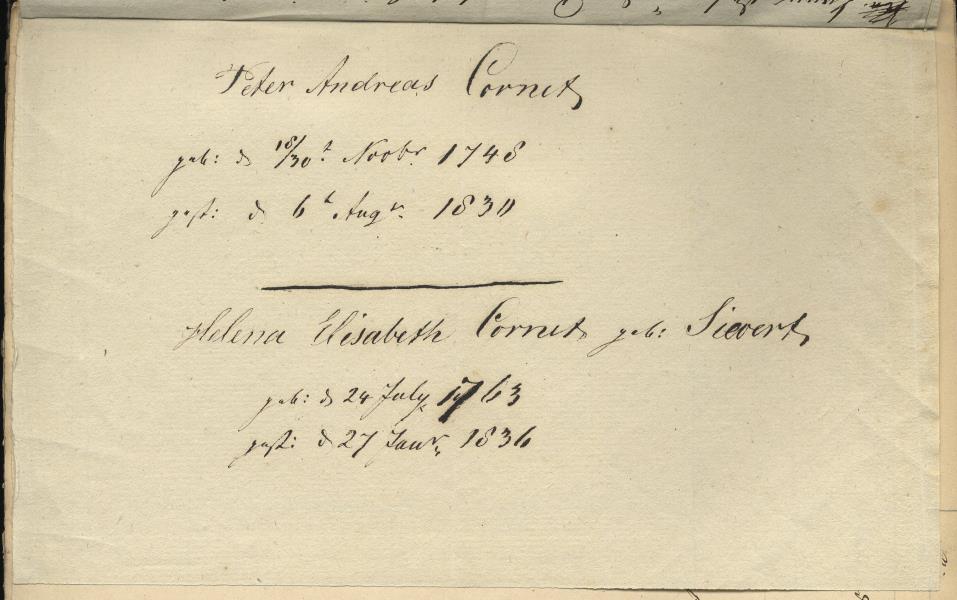 Peter Andreas Cornet
geb: d 18/30t Novbr. 1748
gest: d 6t Augr. 1830
Helena Elisabeth Cornet geb: Sievert
geb: d 24 July 1763
gest: d 27 Janr. 1836